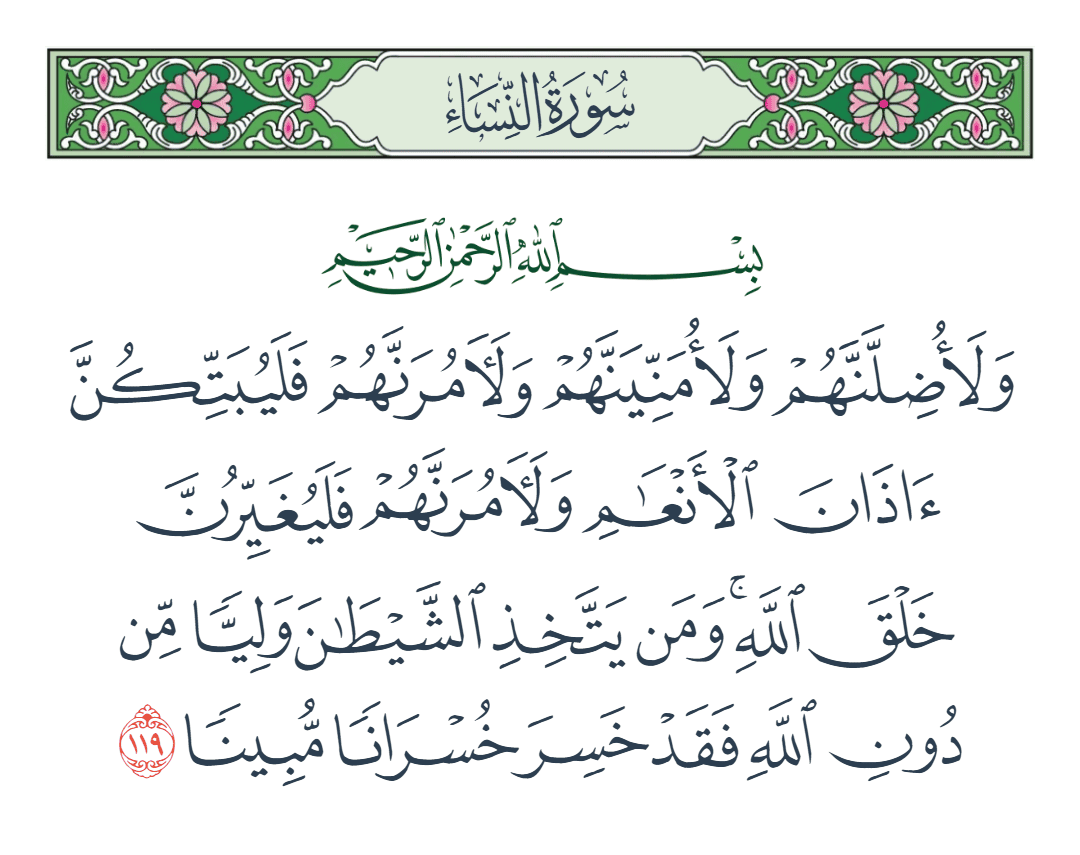 سُورَةُ النِّسَاءِ
بِسْمِ ٱللَّهِ ٱلرَّحْمَٰنِ ٱلرَّحِيمِ
وَلَأُضِلَّنَّهُمْ وَلَأُمَنِّيَنَّهُمْ وَلَـَٔامُرَنَّهُمْ فَلَيُبَتِّكُنَّ
ءَاذَانَ ٱلْأَنْعَٰمِ وَلَـَٔامُرَنَّهُمْ فَلَيُغَيِّرُنَّ
خَلْقَ ٱللَّهِۚ وَمَن يَتَّخِذِ ٱلشَّيْطَٰنَ وَلِيًّا مِّن
دُونِ ٱللَّهِ فَقَدْ خَسِرَ خُسْرَانًا مُّبِينًا ١١٩